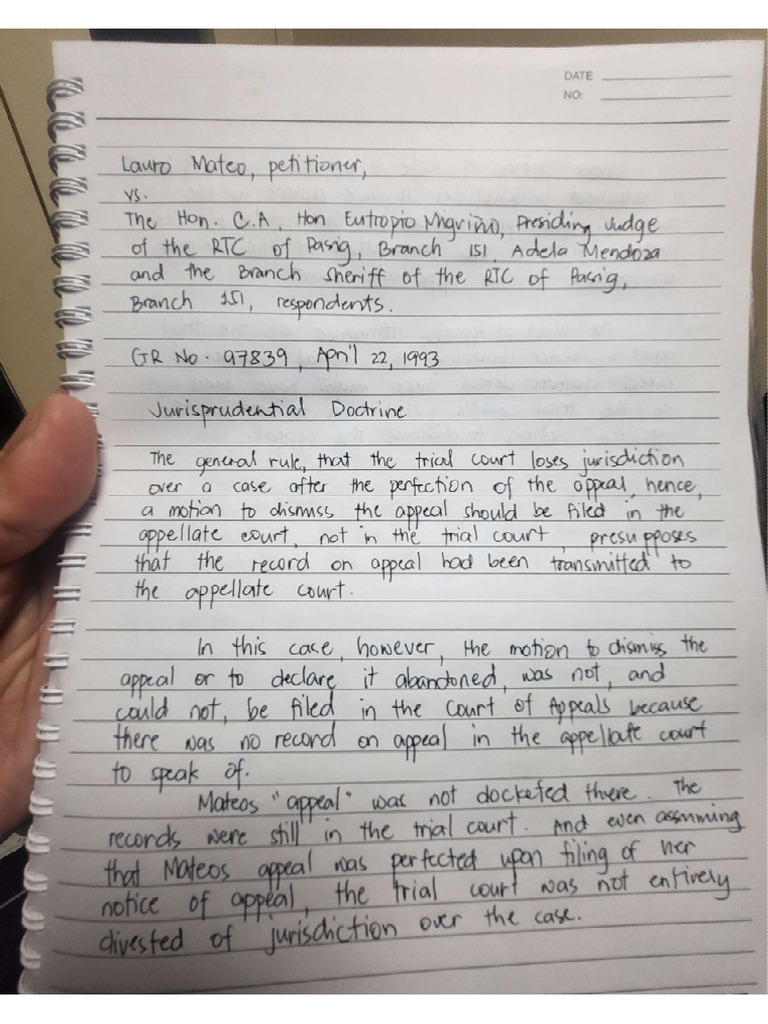 DATE
NO:
Lauro Mateo, petitioner,
vs.
The Hon. C.A, Hon Eutropio Migriño, Presiding Judge
of the RTC of Pasig, Branch 151, Adela Mendoza
and the Branch Sheriff of the RTC of Pasig,
Branch 151, respondents.
GR No. 97839, April 22, 1993
Jurisprudential Doctrine
The general rule, that the trial court loses jurisdiction
over a case after the perfection of the appeal, hence,
a motion to dismiss the appeal should be filed in the
appellate court, not in the trial court, presupposes
that the record on appeal had been transmitted to
the appellate court.
In this case, however, the motion to dismiss the
appeal or to declare it abandoned, was not, and
could not, be filed in the Court of Appeals because
there was no record on appeal in the appellate court
to speak of.
Mateos "appeal" was not docketed there. The
records were still in the trial court. And even assuming
that Mateos appeal was perfected upon filing of her
notice of appeal, the trial court was not entirely
divested of jurisdiction over the case.